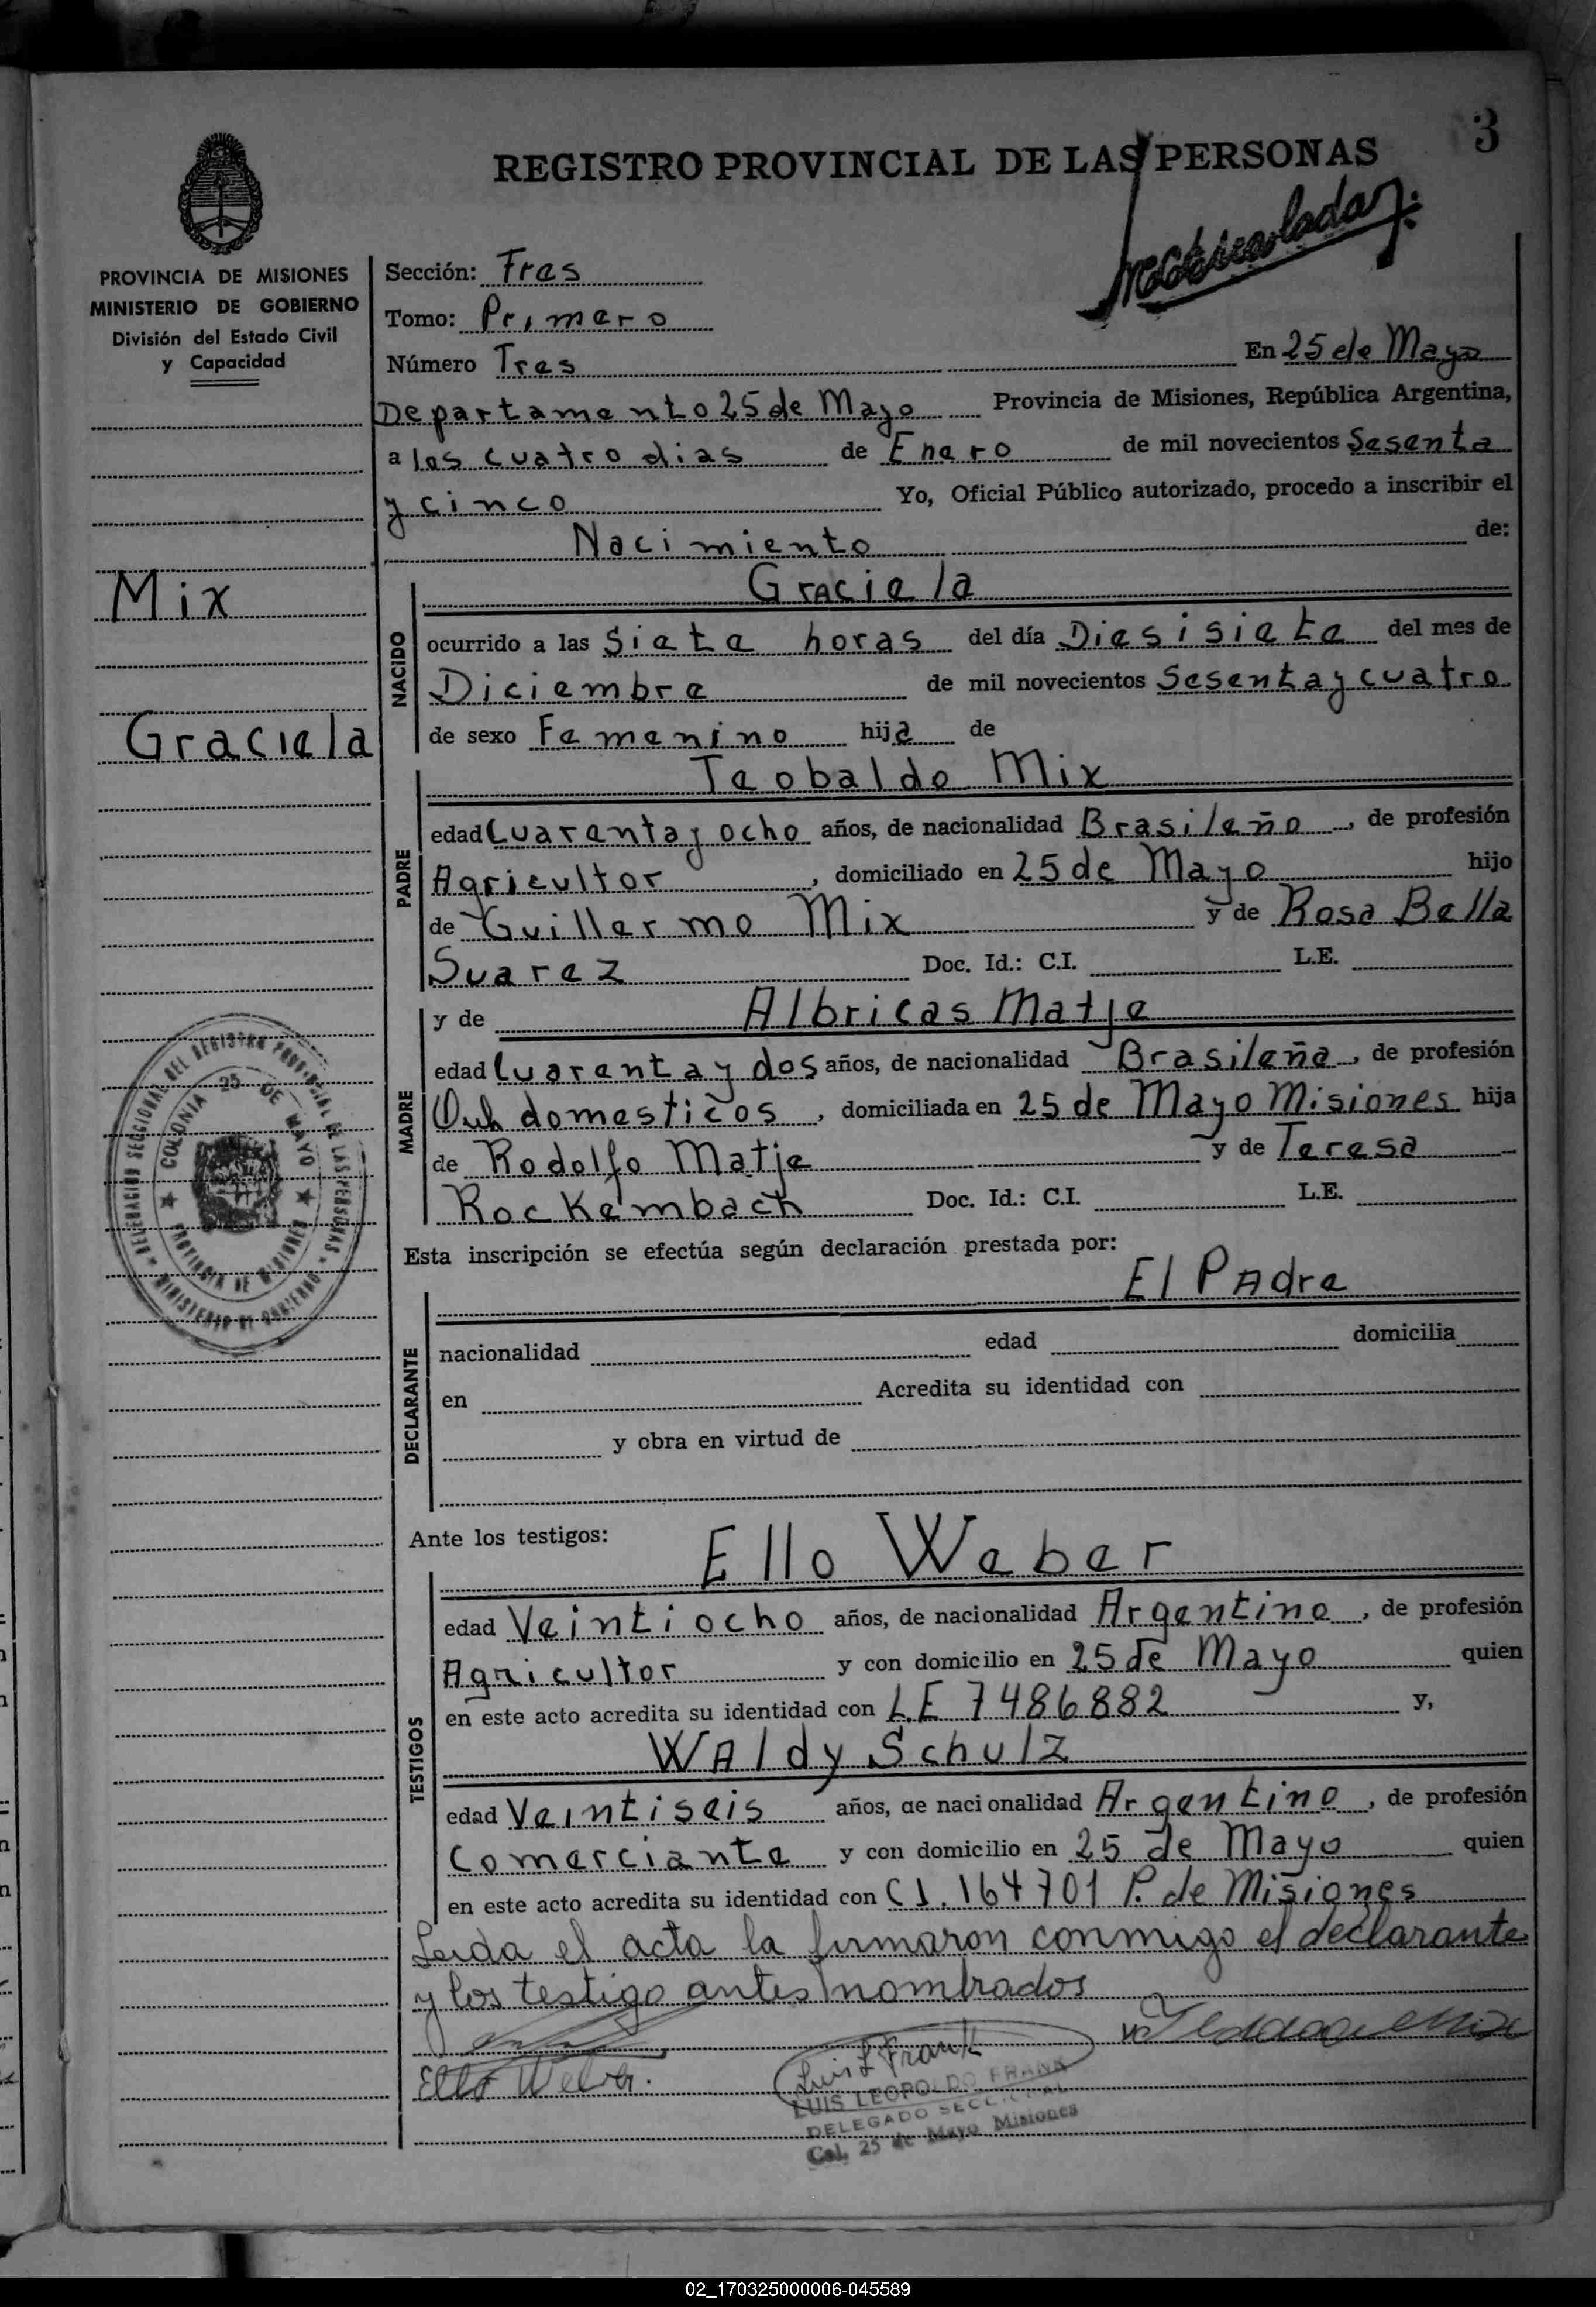 3
REGISTRO PROVINCIAL DE LAS PERSONAS
Matriculada
PROVINCIA DE MISIONES
MINISTERIO DE GOBIERNO
División del Estado Civil
y Capacidad
Sección: Tres
Tomo: Primero
Número Tres En 25 de Mayo
Departamento 25 de Mayo Provincia de Misiones, República Argentina,
a los cuatro dias de Enero de mil novecientos Sesenta
y cinco Yo, Oficial Público autorizado, procedo a inscribir el
Nacimiento de:
Mix
Graciela
NACIDO
Graciela
ocurrido a las Siete horas del día Diesisiete del mes de
Diciembre de mil novecientos Sesenta y cuatro
de sexo Femenino hija de
PADRE
Teobaldo Mix
edad Cuarenta y ocho años, de nacionalidad Brasileño, de profesión
Agricultor, domiciliado en 25 de Mayo hijo
de Guillermo Mix y de Rosa Bella
Suarez Doc. Id.: C.I. L.E.
MADRE
y de Albricas Matje
edad Cuarenta y dos años, de nacionalidad Brasileña, de profesión
domesticos, domiciliada en 25 de Mayo Misiones hija
de Rodolfo Matje y de Teresa
Rockembach Doc. Id.: C.I. L.E.
DELEGACION SECCIONAL DEL REGISTRO PROVINCIAL DE LAS PERSONAS
MINISTERIO DE GOBIERNO
COLONIA 25 DE MAYO
PROVINCIA DE MISIONES
Esta inscripción se efectúa según declaración prestada por:
DECLARANTE
El Padre
nacionalidad edad domicilia
en Acredita su identidad con
y obra en virtud de
Ante los testigos:
TESTIGOS
Ello Weber
edad Veintiocho años, de nacionalidad Argentino, de profesión
Agricultor y con domicilio en 25 de Mayo quien
en este acto acredita su identidad con LE 7486882 y,
Waldy Schulz
edad Veintiseis años, de nacionalidad Argentino, de profesión
Comerciante y con domicilio en 25 de Mayo quien
en este acto acredita su identidad con CI. 164701 P. de Misiones
Leida el acta la firmaron conmigo el declarante
y los testigo antes nombrados
Ello Weber.
Luis L Frank
LUIS LEOPOLDO FRANK
DELEGADO SECCIONAL
Col. 25 de Mayo Misiones
02_170325000006-045589